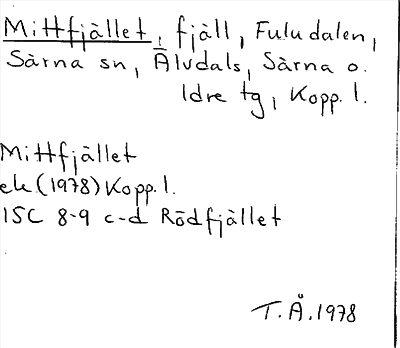 Mittfjället, fjäll, Fuludalen,
Särna sn, Älvdals, Särna o.
Idre tg, Kopp. l.
Mittfjället
ek (1978) Kopp. l.
15C 8-9 c-d Rödfjället
T.Å. 1978